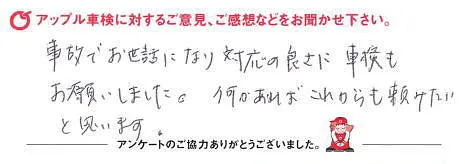 アップル車検に対するご意見、ご感想などをお聞かせ下さい。
事故でお世話になり対応の良さに車検も
お願いしました。何かあればこれからも頼みたい
と思います。
アンケートのご協力ありがとうございました。